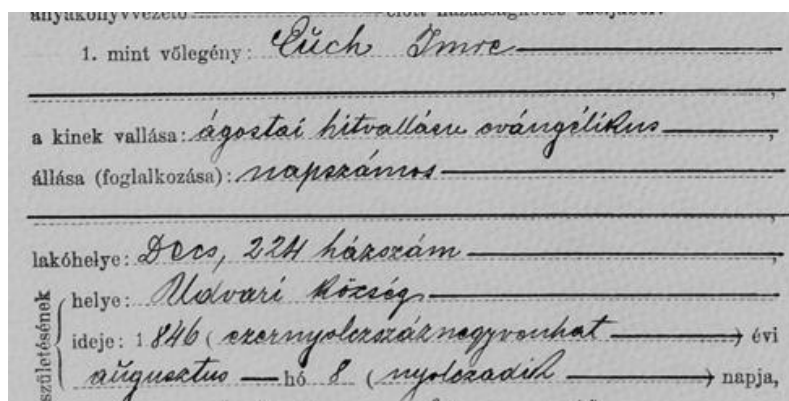 anyakönyvvezető előtt házasságkötés céljából:
1. mint vőlegény: Eüch Imre
a kinek vallása: ágostai hitvallásu evángélikus,
állása (foglalkozása): napszámos
lakóhelye: Decs, 224 házszám
születésének
helye: Udvari község
ideje: 1846 (ezernyolczszáznegyvenhat) évi
augusztus hó 8 (nyolczadik) napja,